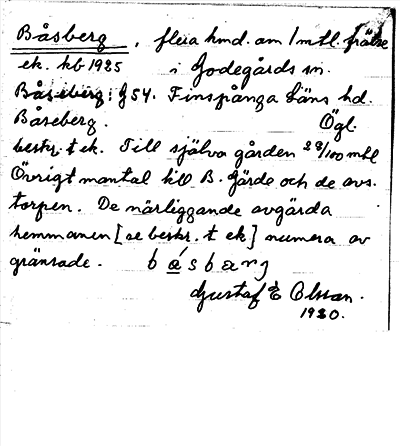 Båsberg, flera hmd. om 1 mtl. frälse
ek. kb 1925 i Godegårds sn.
Båseberg: J 54. Finspånga läns hd.
Båseberg. Ögl.
beskr. t ek. Till själva gården 28/100 mtl
Övrigt mantal till B. Gärde och de avs.
torpen. De närliggande avgärda
hemmanen [se beskr. t ek] numera av
gränsade. b ǻ s b a r g
Gustaf E Olsson.
1930.